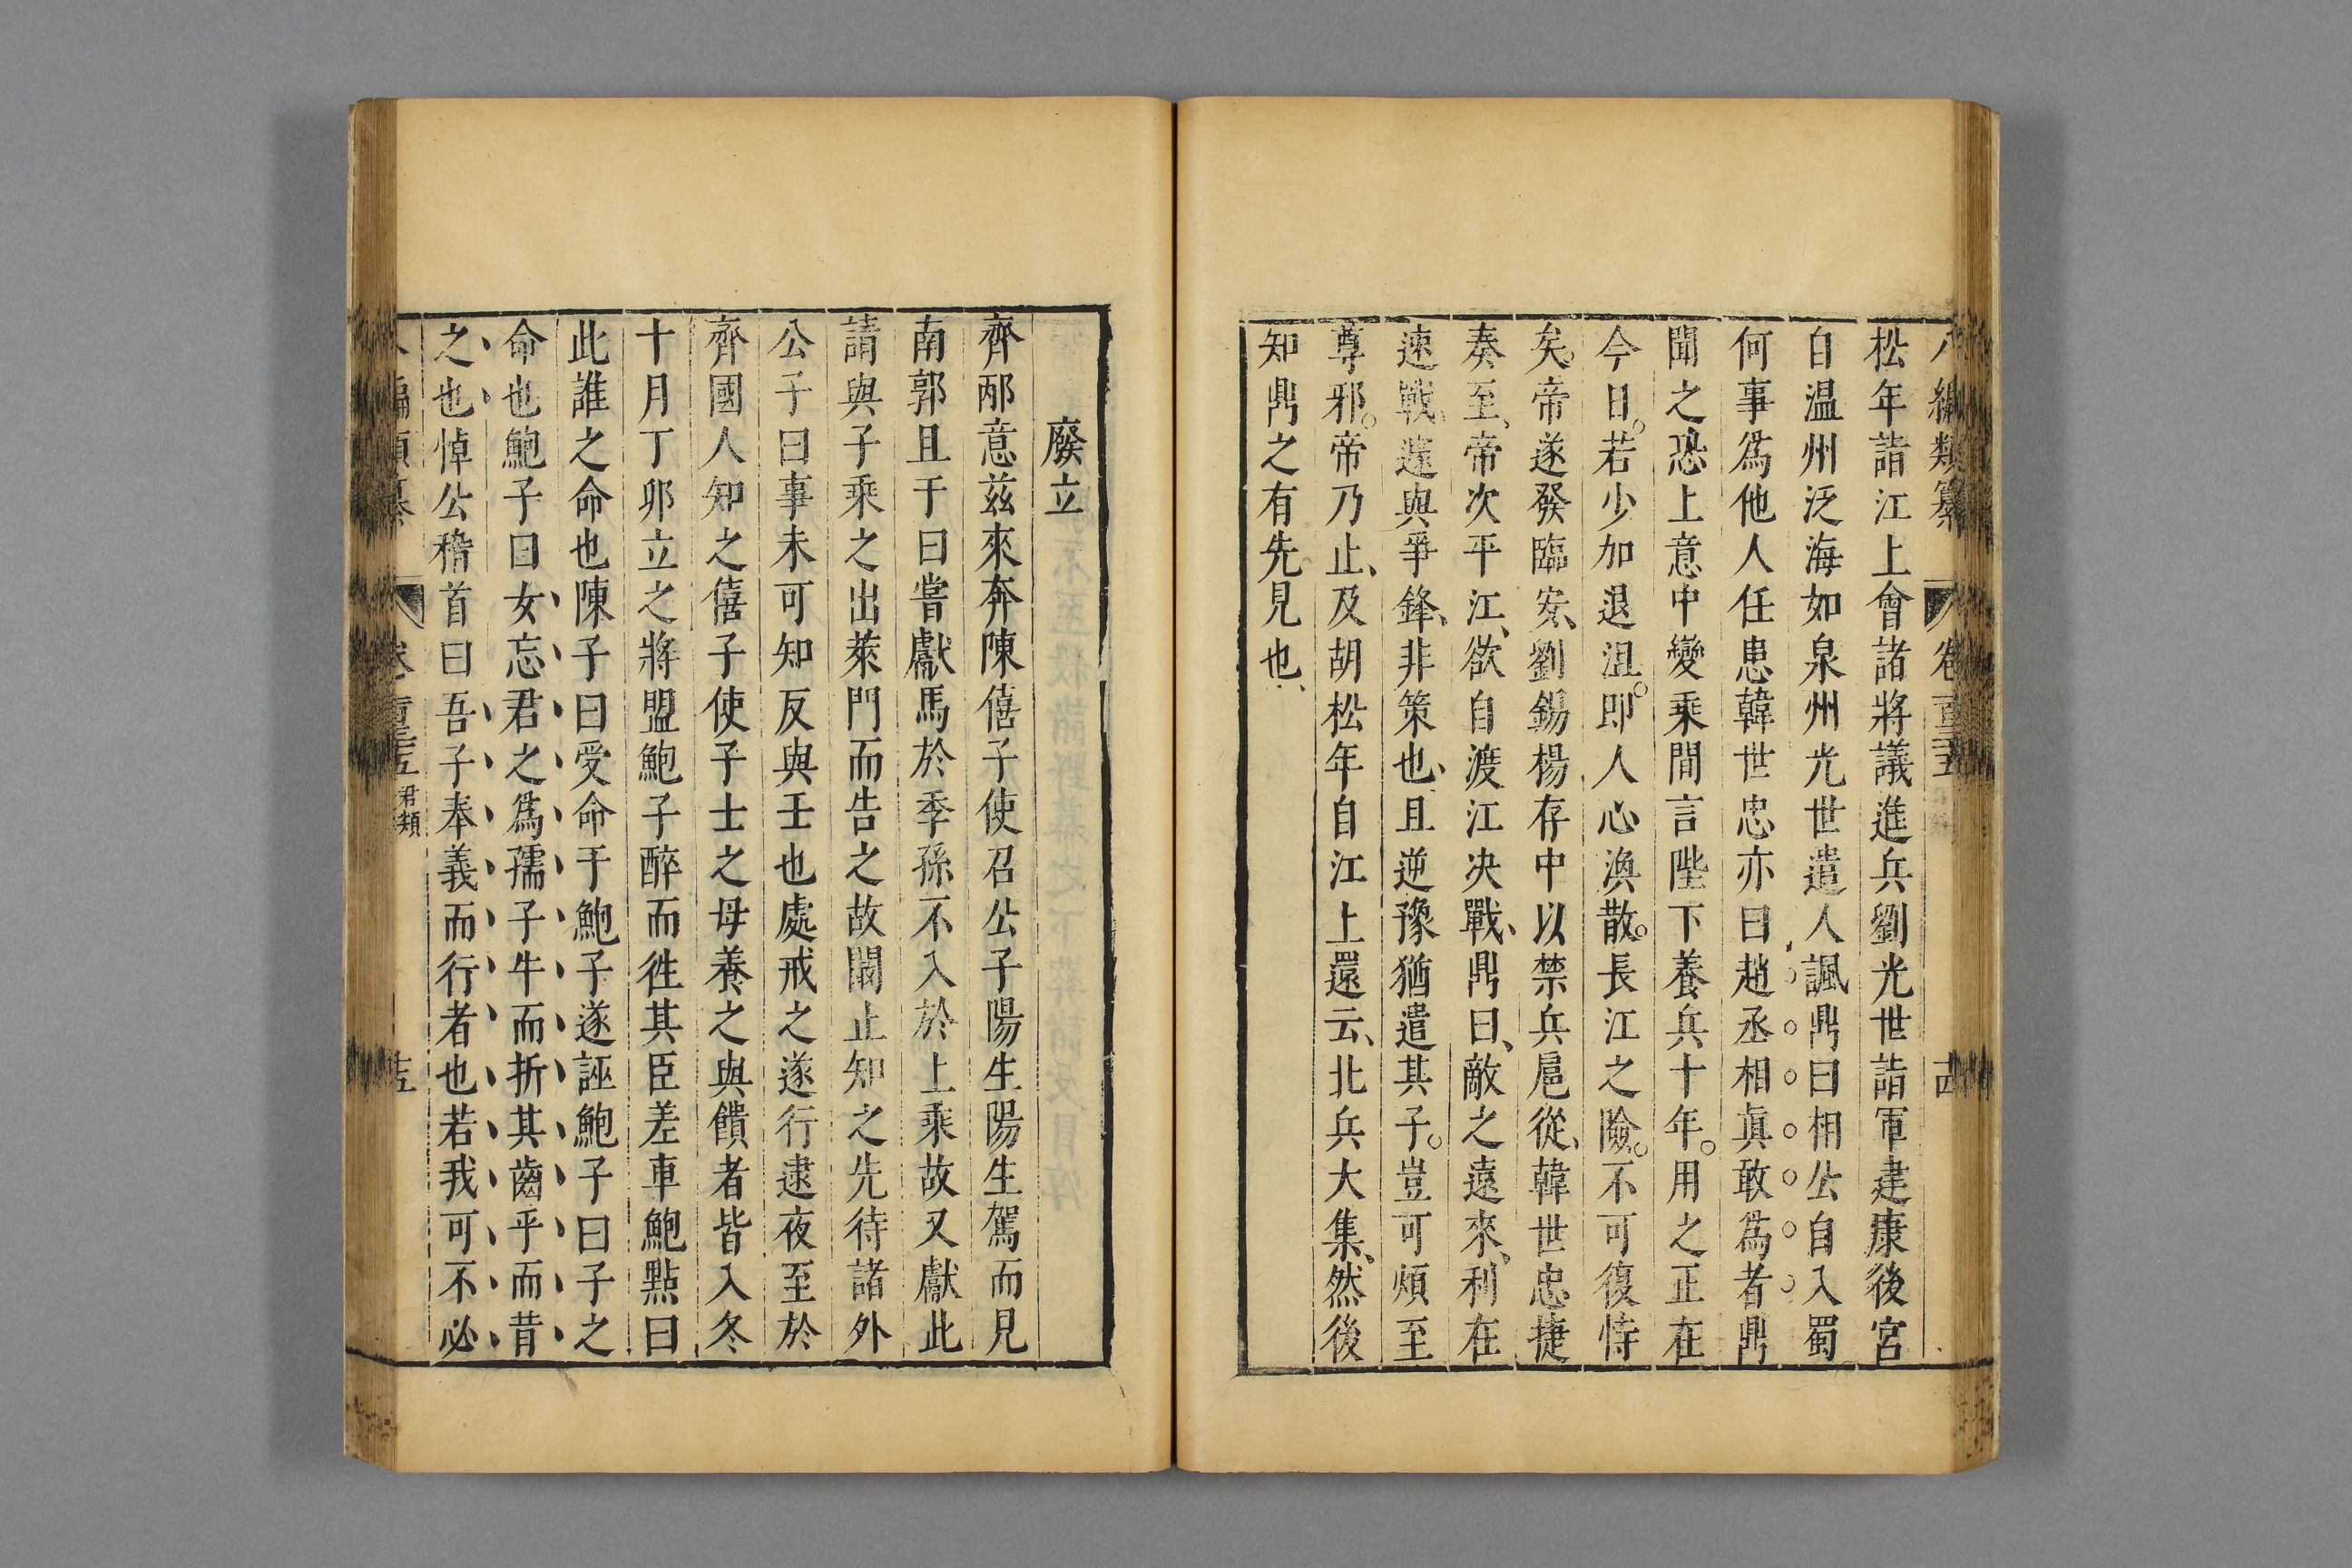 編類纂 卷 五
松年詣江上會諸將議進兵劉光世詣軍建康後宮
自温州泛海如泉州光世遣人諷鼎曰相公自入蜀
何事爲他人任患韓世忠亦曰趙丞相眞敢爲者鼎
聞之恐上意中變乘間言陛下養兵十年。用之正在
今日。若少加退沮。即人心渙散。長江之險。不可復恃
矣。帝遂發臨安、劉錫楊存中以禁兵扈從、韓世忠捷
奏至、帝次平江、欲自渡江决戰、鼎曰、敵之遠來、利在
速戰、遽與爭鋒、非策也、且逆豫猶遣其子。豈可煩至
尊邪。帝乃止、及胡松年自江上還云、北兵大集、然後
知鼎之有先見也、
廢立
齊邴意茲來奔陳僖子使召公子陽生陽生駕而見
南郭且于曰嘗獻馬於季孫不入於上乘故又獻此
請與子乘之出萊門而告之故闞止知之先待諸外
公子曰事未可知反與壬也處戒之遂行逮夜至於
齊國人知之僖子使子士之母養之與饋者皆入冬
十月丁卯立之將盟鮑子醉而徃其臣差車鮑點曰
此誰之命也陳子曰受命于鮑子遂誣鮑子曰子之
命也鮑子曰女忘君之爲孺子牛而折其齒乎而背
之也悼公稽首曰吾子奉義而行者也若我可不必
君類